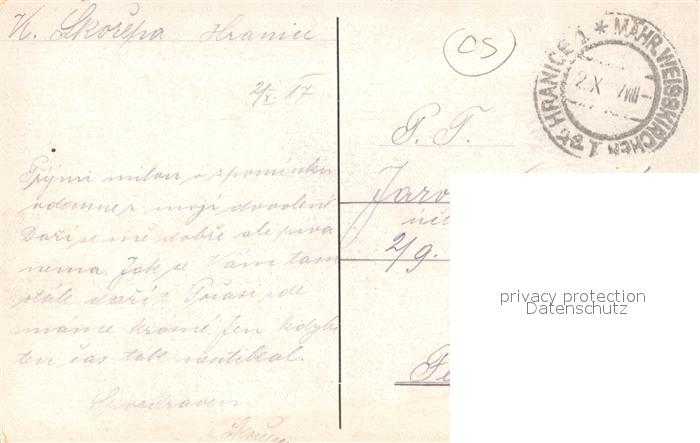 K. Skořepa Hranice
2/X 17
Přijmi milou vzpomínku
odemne z mojí dovolené
Daří se mě dobře ale piva
nemá. Jak se Vám tam
stále daří? Počasí zde
máme krásné Jen kdyby
ten čas tak neutíkal.
S pozdravem
Skořepa
CS
HRANICE 1 * MÄHR. WEISSKIRCHEN 1
2 X VIII
P. T.
Jaro
2/9.
privacy protection
Datenschutz